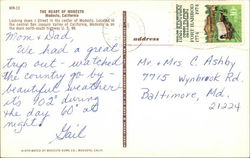 THE HEART OF MODESTO
Modesto, California
Looking down I Street in the center of Modesto, located in
the central San Joaquin Valley of California, Modesto is on
the main north-south highway U.S. 99.
Mom & Dad,
We had a great
trip out - watched
the country go by -
beautiful weather
its 102° during
the day 60° at
night!
Gail
Mr. & Mrs C. Ashby
7715 Wynbrook Rd.
Baltimore, Md.
21224